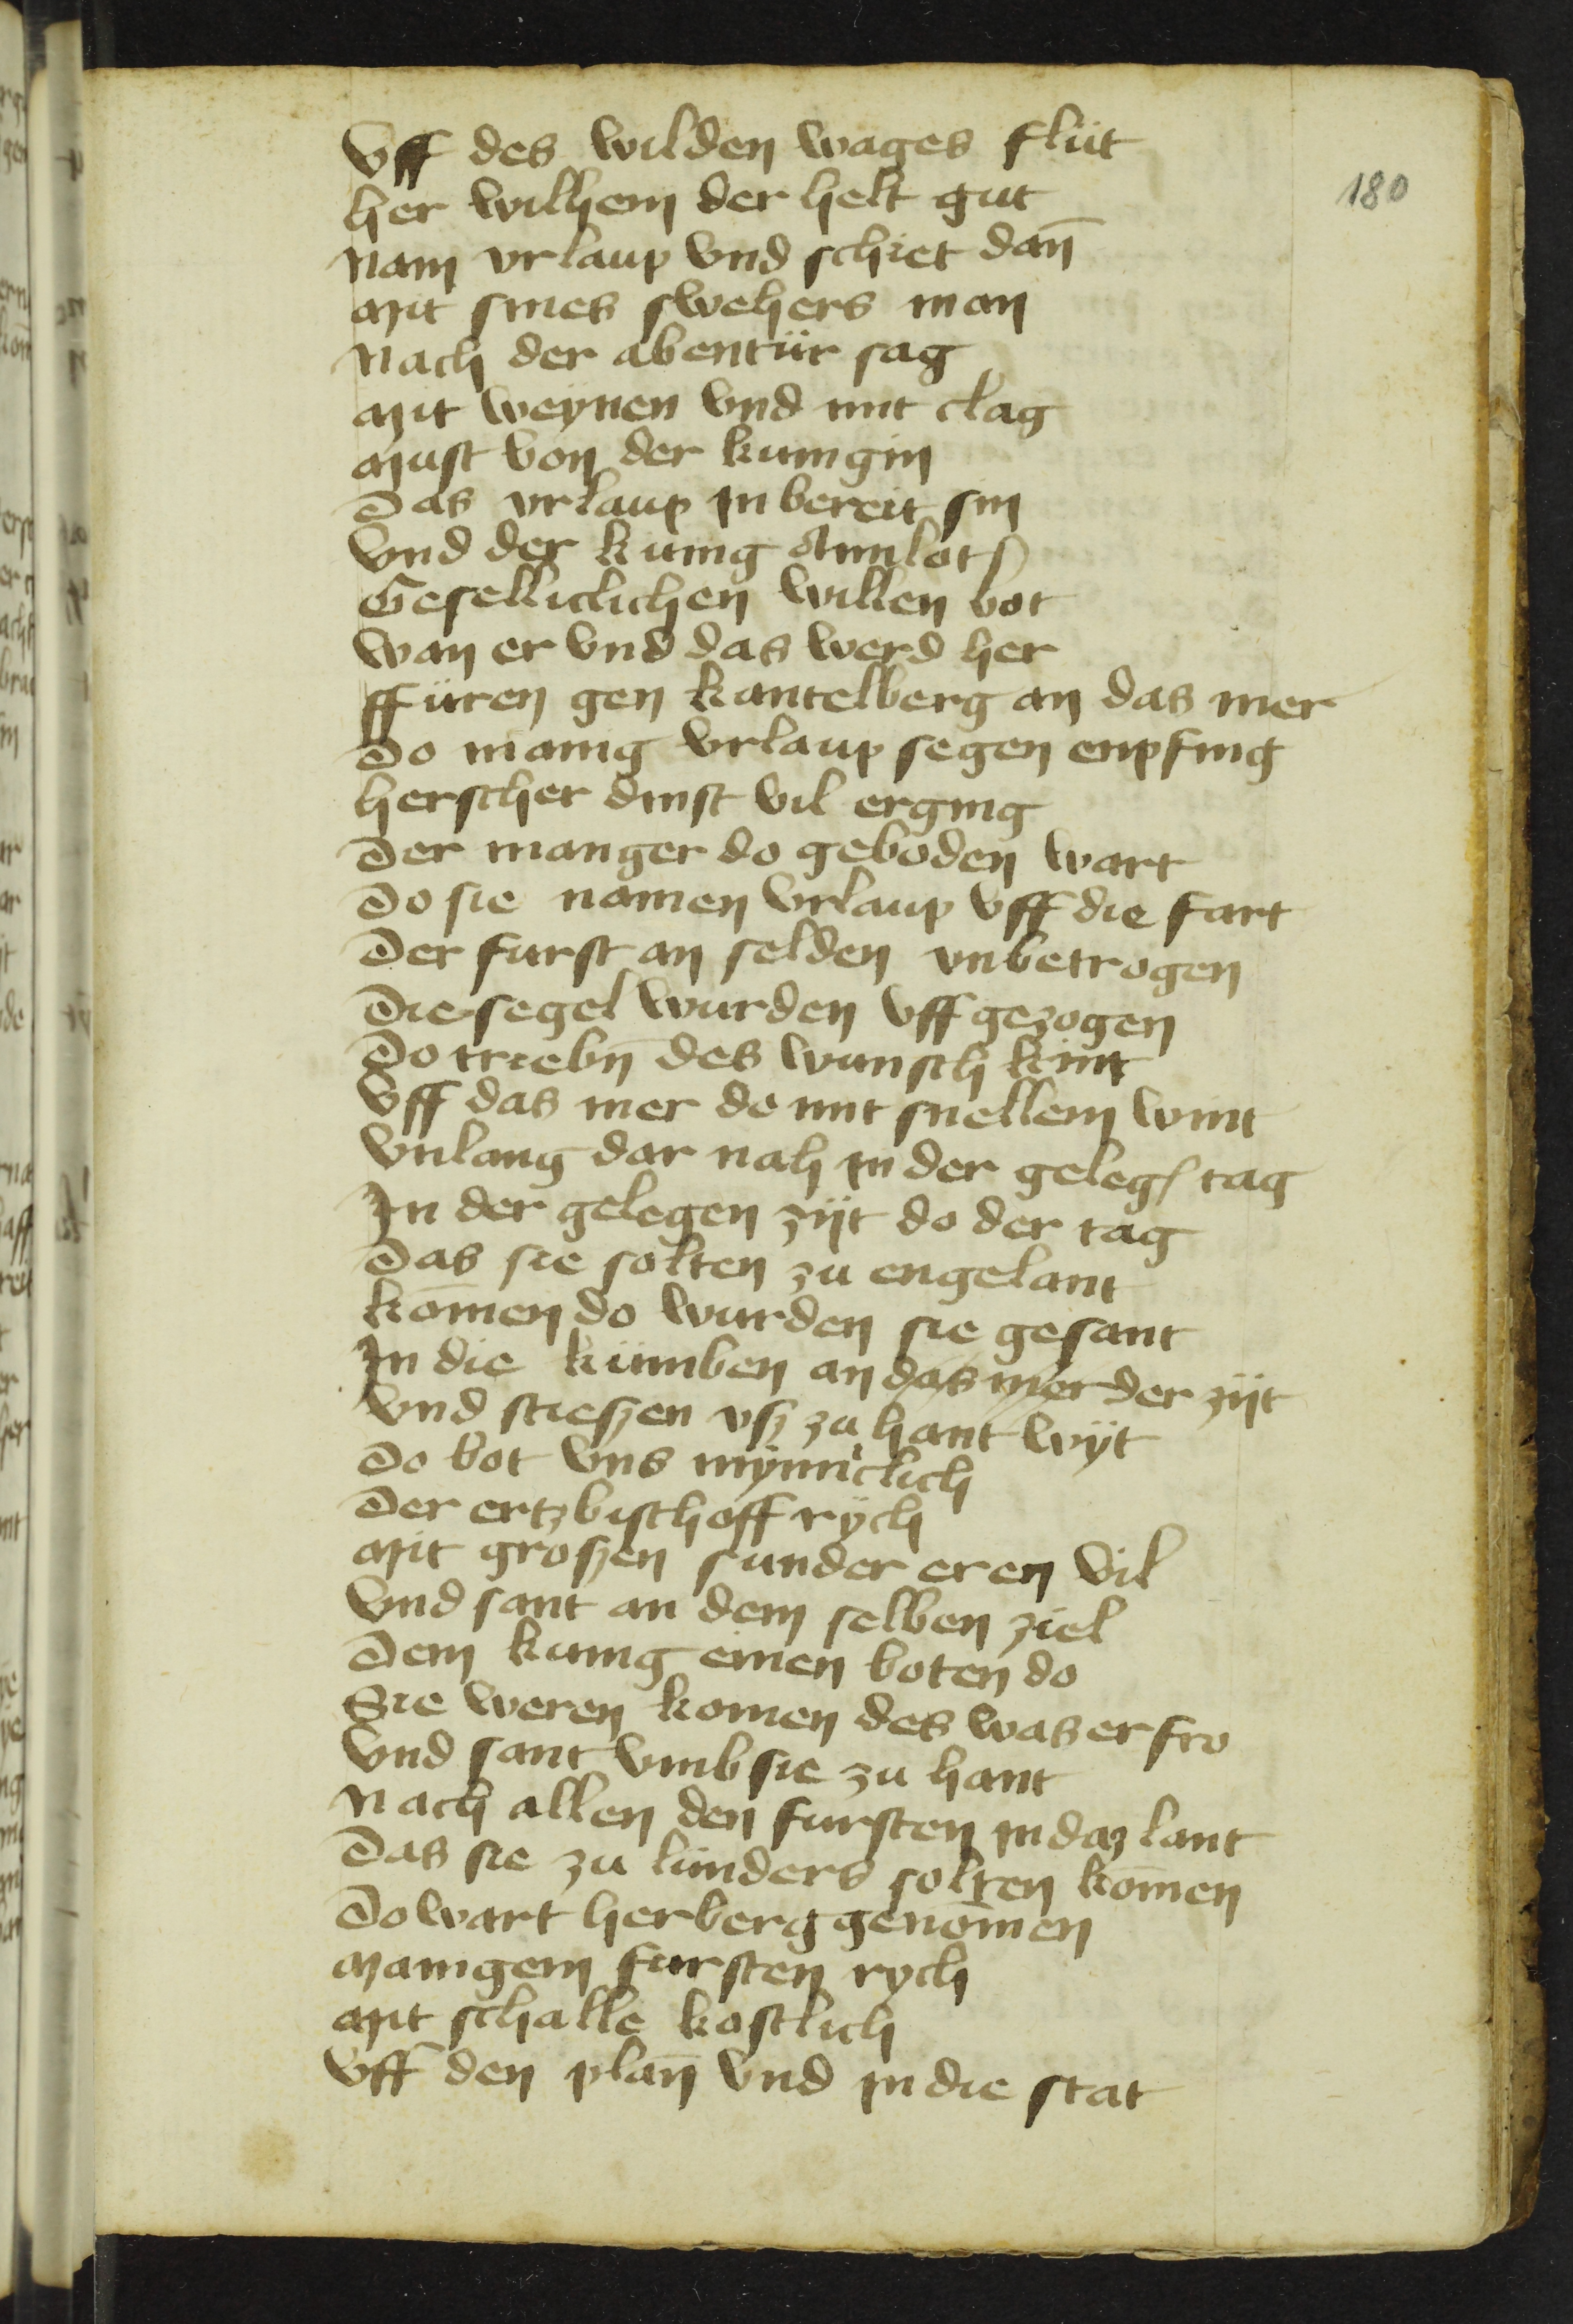 180
Vff des wilden wages flüt
her wilhem der helt gut
Nam vrlaup vnd schiet dan̄
Mit sines swehers man
Nach der abentür sag
Mit weynen vnd mit clag
Must von der kunigin
Das vrlaup in bereit sin
Vnd der kunig Amlot
Geselliclichen willen bot
Wan er vnd das werd her
ffüren gen kantelberg an das mer
Do manig vrlaup segen enpfing
herscher dinst vil erging
Der manger do geboden wart
Do sie namen vrlaup vff die fart
Der furst an selden vnbetrogen
Die segel wurden vff gezogen
Do triebn̄ des wunsch kint
Vff das mer do mit snellem wint
Vnlang dar nah in der geleg tag
In der gelegen zijt do der tag
Das sie solten zu engelant
kōmen do wurden sie gesant
In die künben an das mer der zijt
Vnd stieszen vsz zu hant wijt
Do bot vns mÿniclich
Der ertzbischoff rÿch
Mit groszen sunder eren vil
Vnd sant an dem selben ziel
Dem kunig einen boten do
Sie weren komen des was er fro
Vnd sant vmb sie zu hant
Nach allen den fursten in daz lant
Das sie zu lunders solten kōmen
Do wart herberg genōmen
Manigem fursten rych
Mit schalle kostlich
Vff den plan̄ vnd in die stat